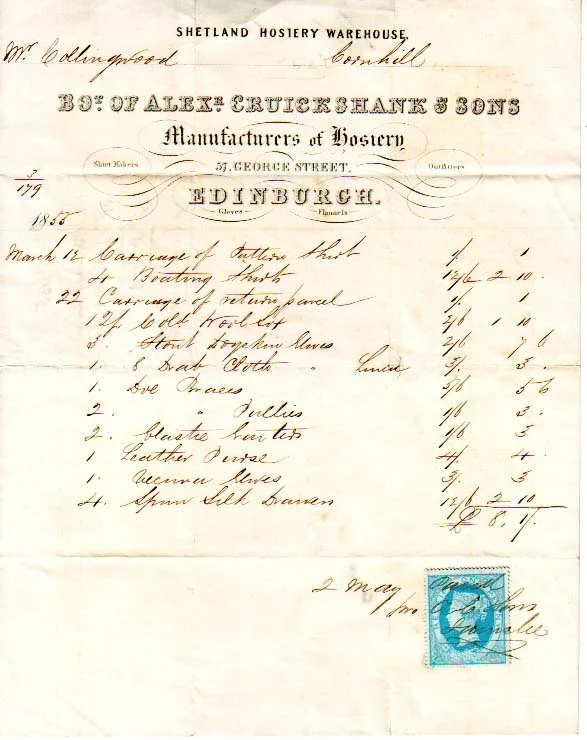 SHETLAND HOSIERY WAREHOUSE.
Mr Collingwood Cornhill
BOT. OF ALEXR. CRUICKSHANK & SONS
Manufacturers of Hosiery
Shirt Makers 57, GEORGE STREET. Outfitters
EDINBURGH.
Gloves Flannels
3
179
1855
March 12 Carriage of Pattern Shirt 1/. 1
4 Boating Shirts 12/6 2 10 .
22 Carriage of return parcel 1/. 1
12/ Cold Wool Sox 2/6 1 10
3. Stout Dogskin Gloves 2/6 7 6
1. 8 Drab Cloth " Lined 3/. 3 .
1. Doe Braces 5/6 5 6
2. " Pullies 1/6 3 .
2. Elastic Garters 1/6 3
1 Leather Purse 4/. 4 .
1. Vecuna Gloves 3/. 3
4. Spun Silk Drawers 12/6 2 10
£ 8. 1/.
2 May
pro & Sons